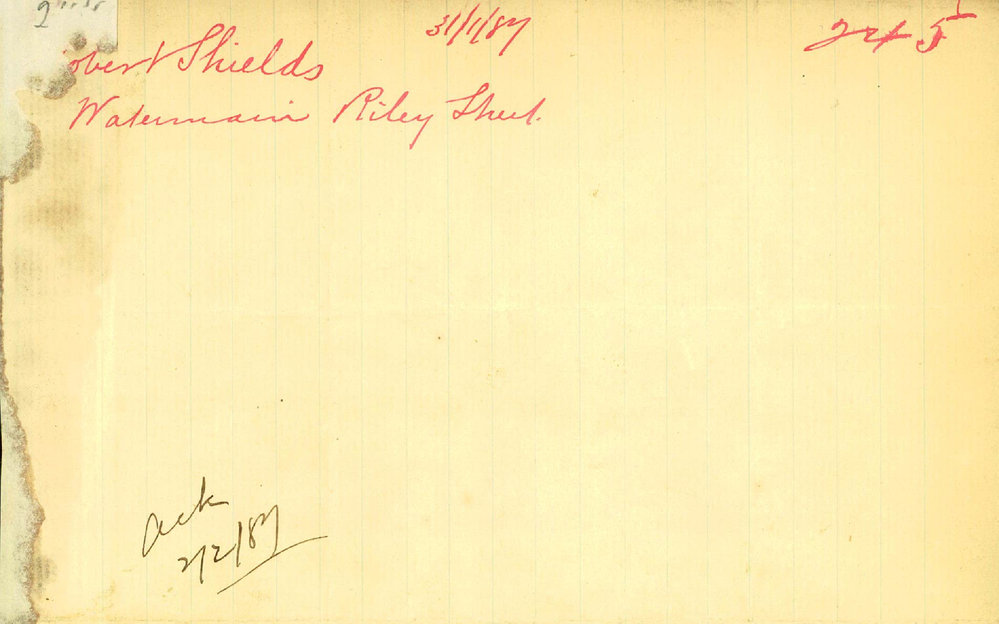 31/1/87
245
obert Shields
Watermain Riley Street.
Ack
2/2/87